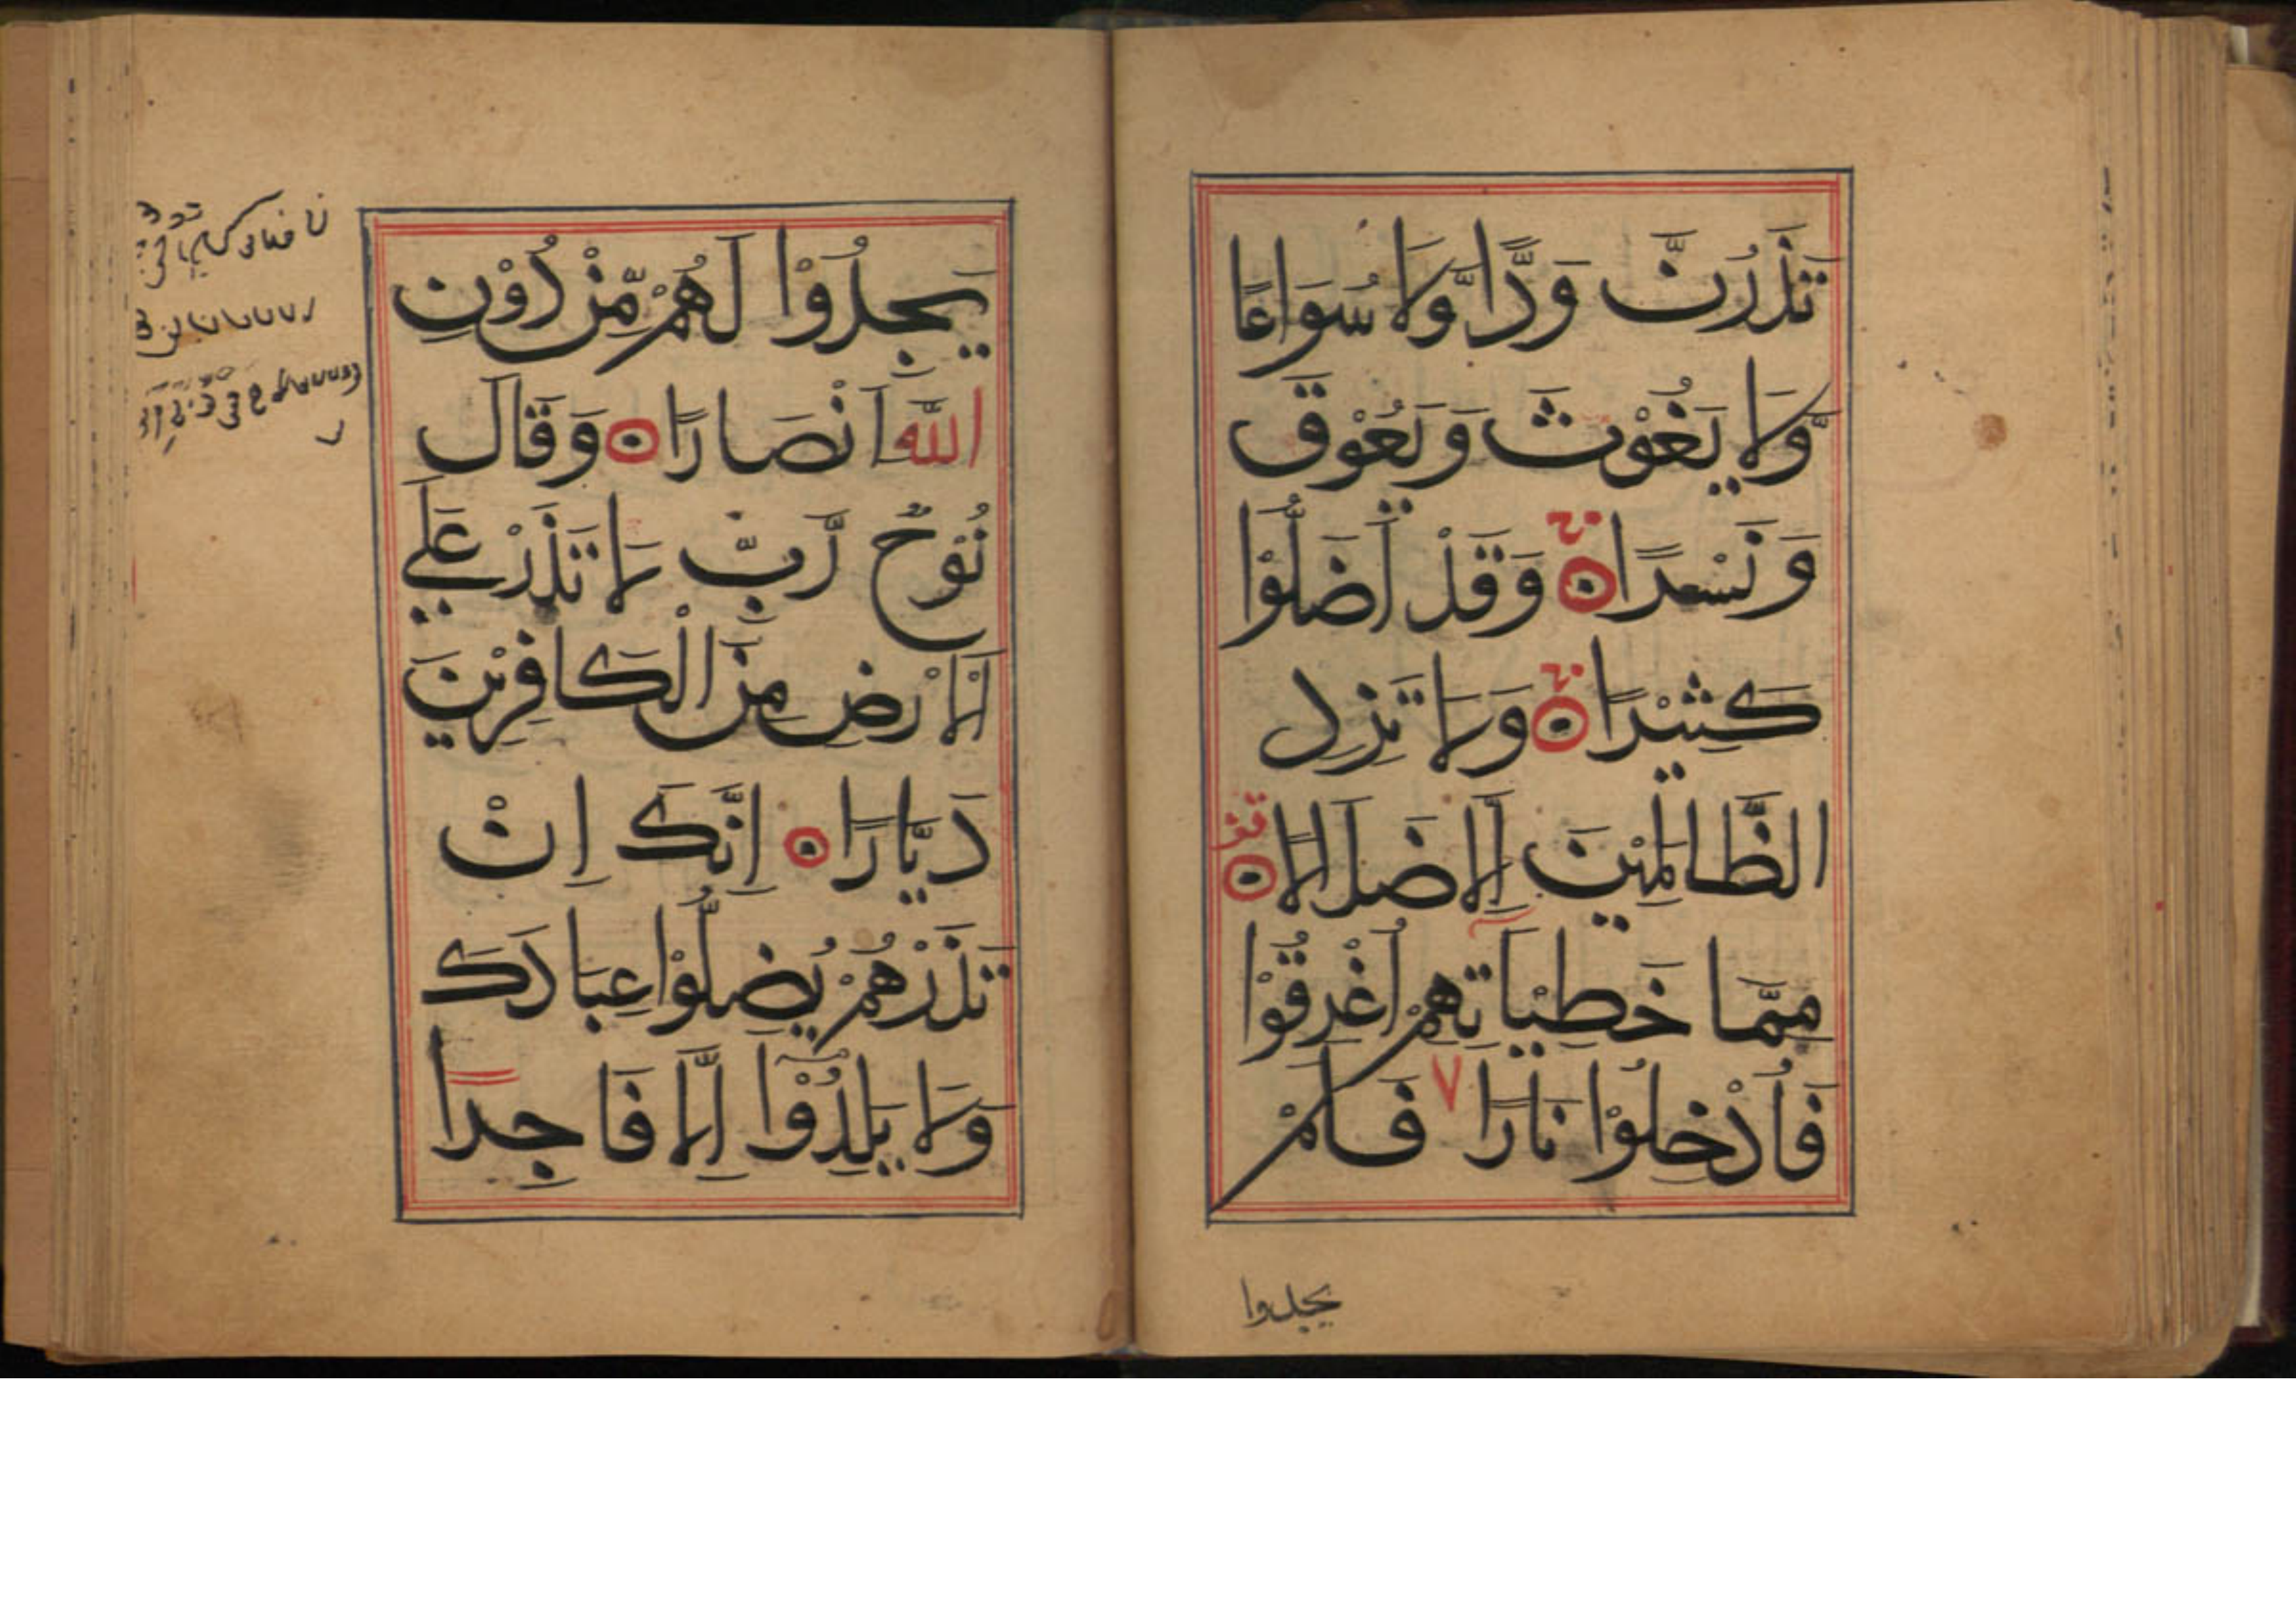 تَذَرُنَّ وَدًّا وَّلَا سُوَاعًا
وَّلَا يَغُوْثَ وَيَعُوْقَ
وَنَسْرًا وَقَدْ اَضَلُّوْا
كَثِيْرًا وَلَا تَزِدِ
الظَّالِمِيْنَ اِلَّا ضَلَالًا
مِمَّا خَطِيْاٰتِهِمْ اُغْرِقُوْا
فَاُدْخِلُوْا نَارًا فَلَمْ
يجدوا
يَجِدُوْا لَهُمْ مِّنْ دُوْنِ
اللّٰهِ اَنْصَارًا وَقَالَ
نُوْحٌ رَّبِّ لَا تَذَرْ عَلَى
الْاَرْضِ مِنَ الْكَافِرِيْنَ
دَيَّارًا اِنَّكَ اِنْ
تَذَرْهُمْ يُضِلُّوْا عِبَادَكَ
وَلَا يَلِدُوْٓا اِلَّا فَاجِرًا